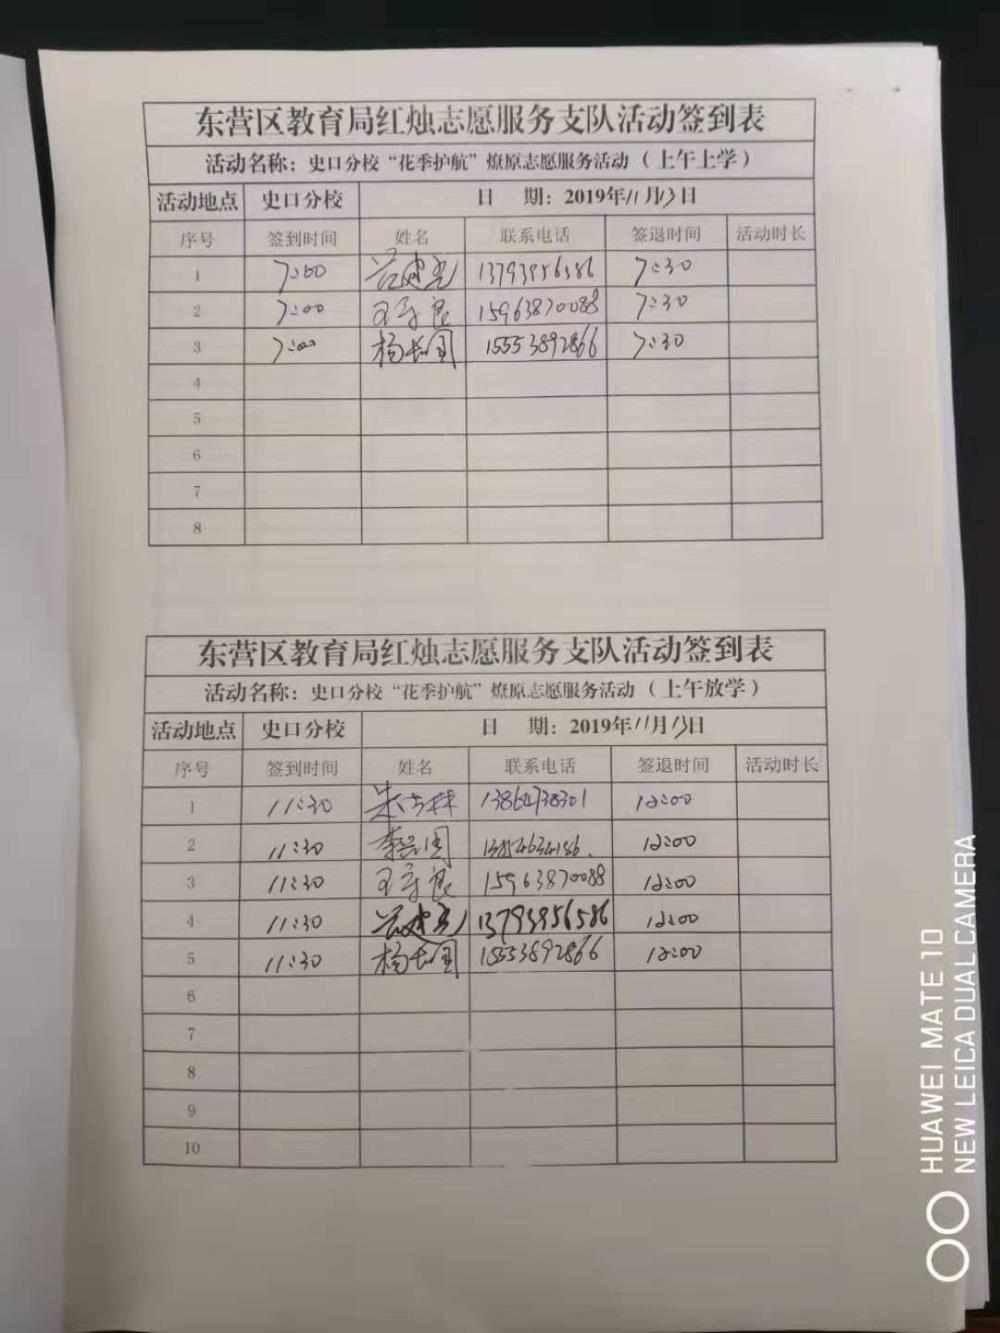 东营区教育局红烛志愿服务支队活动签到表
活动名称：史口分校“花季护航”燎原志愿服务活动（上午上学）
活动地点 史口分校 日 期：2019年11月13日
序号 签到时间 姓名 联系电话 签退时间 活动时长
1 7:00 13793956586 7:30
2 7:00 王守良 15963870088 7:30
3 7:00 杨长国 15553892866 7:30
4
5
6
7
8
东营区教育局红烛志愿服务支队活动签到表
活动名称：史口分校“花季护航”燎原志愿服务活动（上午放学）
活动地点 史口分校 日 期：2019年11月13日
序号 签到时间 姓名 联系电话 签退时间 活动时长
1 11:30 13864738301 12:00
2 11:30 李兴国 12:00
3 11:30 王守良 15963870088 12:00
4 11:30 13793956586 12:00
5 11:30 杨长国 15553892866 12:00
6
7
8
9
10
HUAWEI MATE 10
NEW LEICA DUAL CAMERA